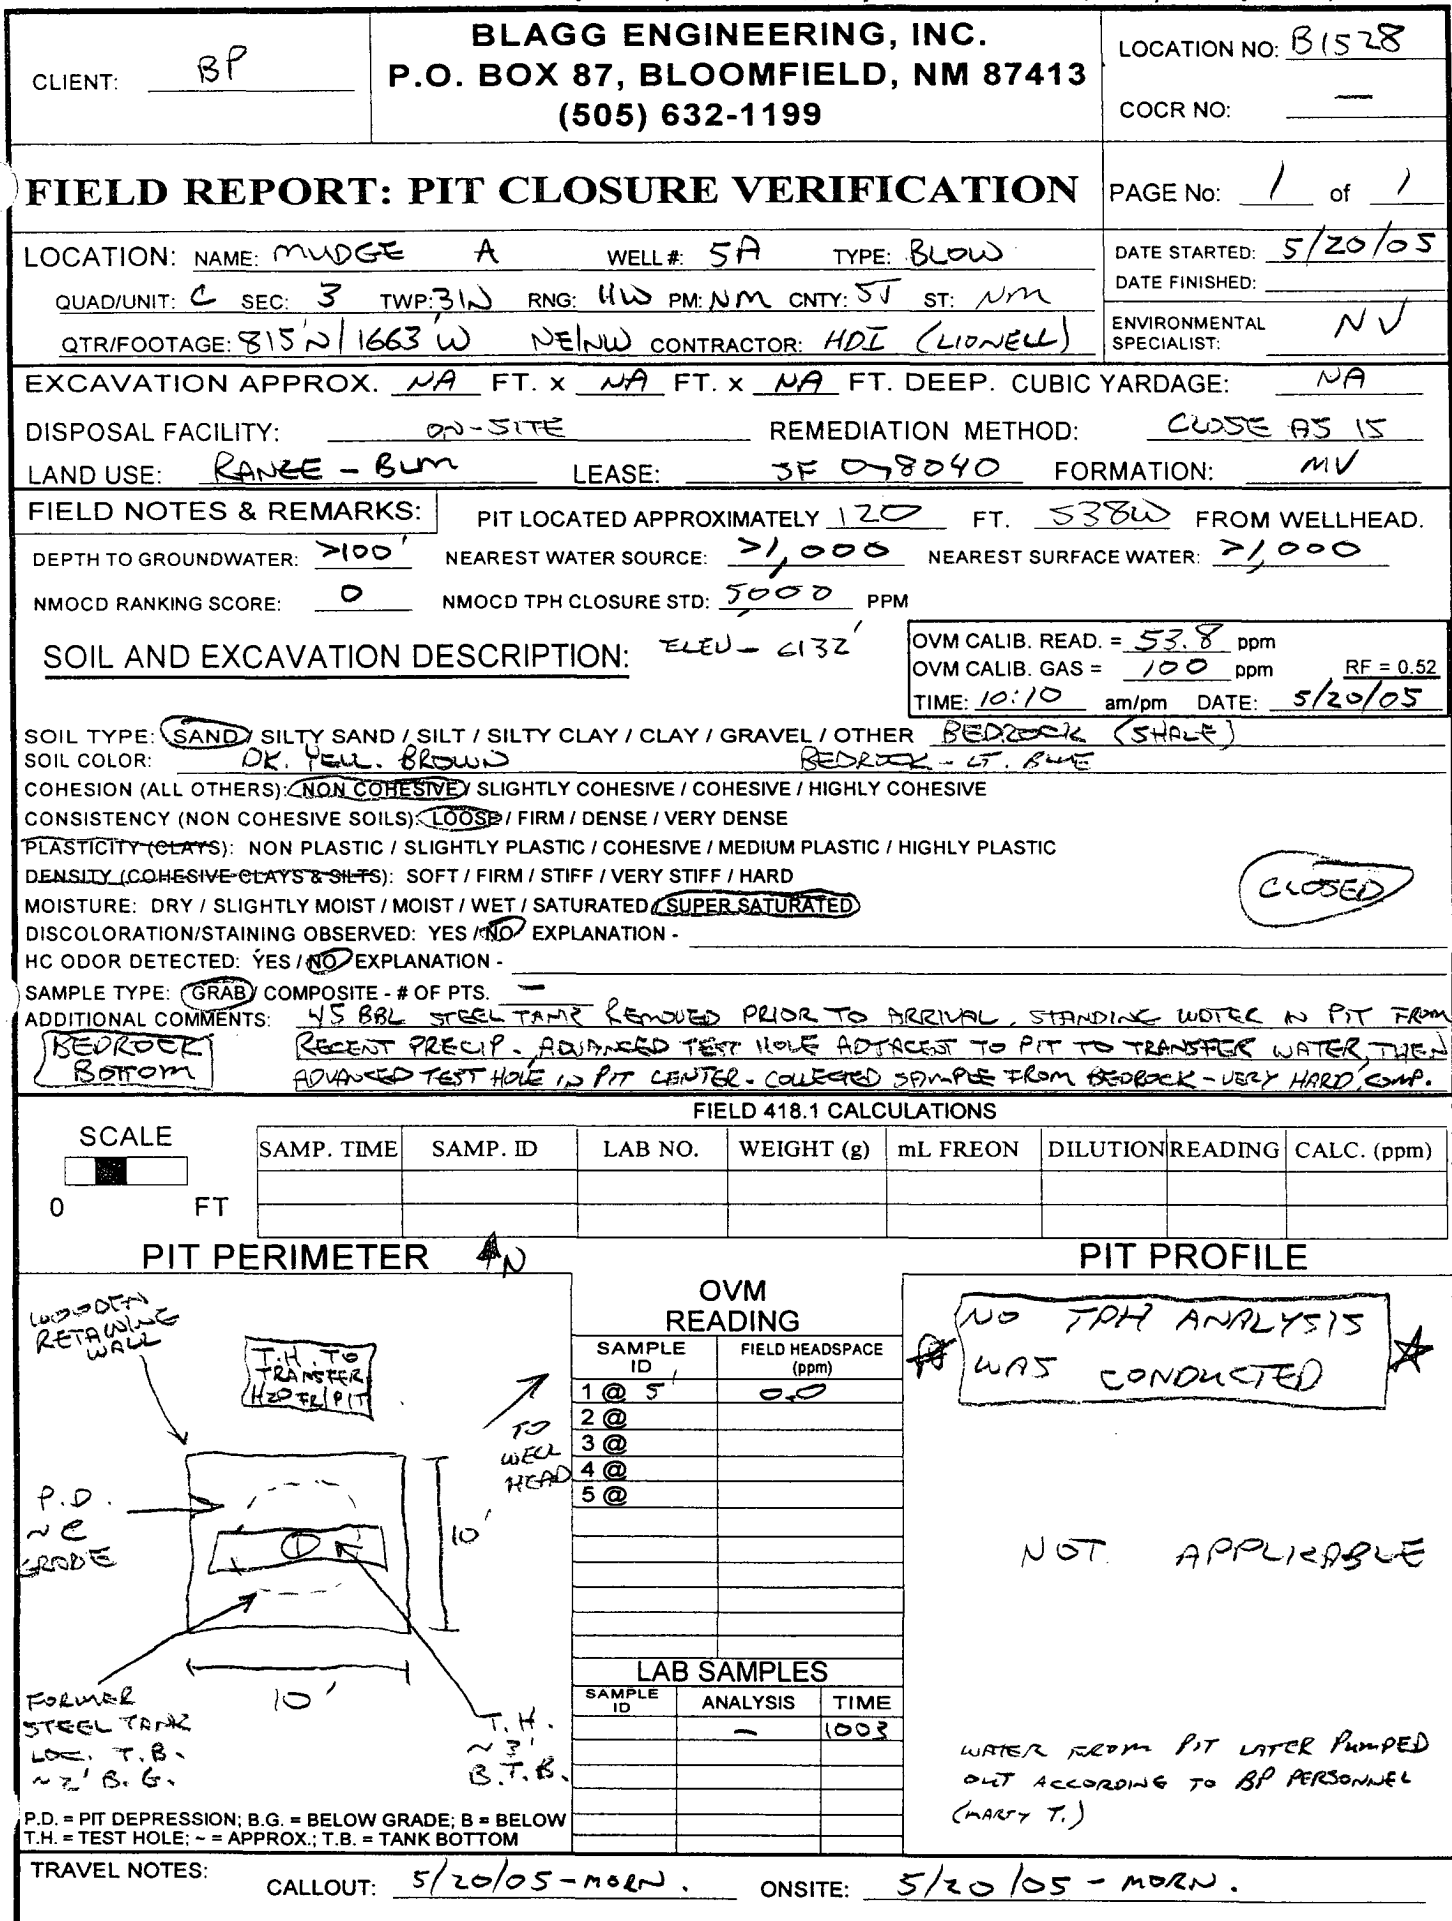 BLAGG ENGINEERING, INC.
P.O. BOX 87, BLOOMFIELD, NM 87413
(505) 632-1199
CLIENT: BP
LOCATION NO: B1528
COCR NO: —
FIELD REPORT: PIT CLOSURE VERIFICATION
PAGE No: 1 of 1
LOCATION: NAME: MUDGE A WELL #: 5A TYPE: BLOW
QUAD/UNIT: C SEC: 3 TWP: 31N RNG: 11W PM: NM CNTY: SJ ST: NM
QTR/FOOTAGE: 815'N/1663'W NE/NW CONTRACTOR: HDI (LIONELL)
DATE STARTED: 5/20/05
DATE FINISHED:
ENVIRONMENTAL SPECIALIST: NV
EXCAVATION APPROX. NA FT. x NA FT. x NA FT. DEEP. CUBIC YARDAGE: NA
DISPOSAL FACILITY: ON-SITE REMEDIATION METHOD: CLOSE AS IS
LAND USE: RANGE - BLM LEASE: SF 078040 FORMATION: MV
FIELD NOTES & REMARKS: PIT LOCATED APPROXIMATELY 120 FT. S38W FROM WELLHEAD.
DEPTH TO GROUNDWATER: >100' NEAREST WATER SOURCE: >1,000 NEAREST SURFACE WATER: >1,000
NMOCD RANKING SCORE: 0 NMOCD TPH CLOSURE STD: 5000 PPM
SOIL AND EXCAVATION DESCRIPTION: ELEV - 6132'
OVM CALIB. READ. = 53.8 ppm
OVM CALIB. GAS = 100 ppm RF = 0.52
TIME: 10:10 am/pm DATE: 5/20/05
SOIL TYPE: SAND / SILTY SAND / SILT / SILTY CLAY / CLAY / GRAVEL / OTHER BEDROCK (SHALE)
SOIL COLOR: DK. YELL. BROWN BEDROCK - LT. BLUE
COHESION (ALL OTHERS): NON COHESIVE / SLIGHTLY COHESIVE / COHESIVE / HIGHLY COHESIVE
CONSISTENCY (NON COHESIVE SOILS): LOOSE / FIRM / DENSE / VERY DENSE
PLASTICITY (CLAYS): NON PLASTIC / SLIGHTLY PLASTIC / COHESIVE / MEDIUM PLASTIC / HIGHLY PLASTIC
DENSITY (COHESIVE CLAYS & SILTS): SOFT / FIRM / STIFF / VERY STIFF / HARD
MOISTURE: DRY / SLIGHTLY MOIST / MOIST / WET / SATURATED / SUPER SATURATED
CLOSED
DISCOLORATION/STAINING OBSERVED: YES / NO EXPLANATION -
HC ODOR DETECTED: YES / NO EXPLANATION -
SAMPLE TYPE: GRAB / COMPOSITE - # OF PTS. —
ADDITIONAL COMMENTS: 45 BBL STEEL TANK REMOVED PRIOR TO ARRIVAL. STANDING WATER IN PIT FROM
RECENT PRECIP. ADVANCED TEST HOLE ADJACENT TO PIT TO TRANSFER WATER, THEN
ADVANCED TEST HOLE IN PIT CENTER. COLLECTED SAMPLE FROM BEDROCK - VERY HARD, COMP.
BEDROCK
BOTTOM
FIELD 418.1 CALCULATIONS
SCALE
0 FT
SAMP. TIME SAMP. ID LAB NO. WEIGHT (g) mL FREON DILUTION READING CALC. (ppm)
PIT PERIMETER N
WOODEN
RETAINING
WALL
T.H. TO
TRANSFER
H2O FR/PIT
TO
WELL
HEAD
P.D.
~ @
GRADE
1
10'
10'
FORMER
STEEL TANK
LOC. T.B.
~2' B.G.
T.H.
~3'
B.T.B.
P.D. = PIT DEPRESSION; B.G. = BELOW GRADE; B = BELOW
T.H. = TEST HOLE; ~ = APPROX.; T.B. = TANK BOTTOM
OVM
READING
SAMPLE ID FIELD HEADSPACE (ppm)
1 @ 5' 0.0
2 @
3 @
4 @
5 @
LAB SAMPLES
SAMPLE ID ANALYSIS TIME
— 1003
PIT PROFILE
NO TPH ANALYSIS
WAS CONDUCTED
NOT APPLICABLE
WATER FROM PIT LATER PUMPED
OUT ACCORDING TO BP PERSONNEL
(MARTY T.)
TRAVEL NOTES: CALLOUT: 5/20/05 - MORN. ONSITE: 5/20/05 - MORN.